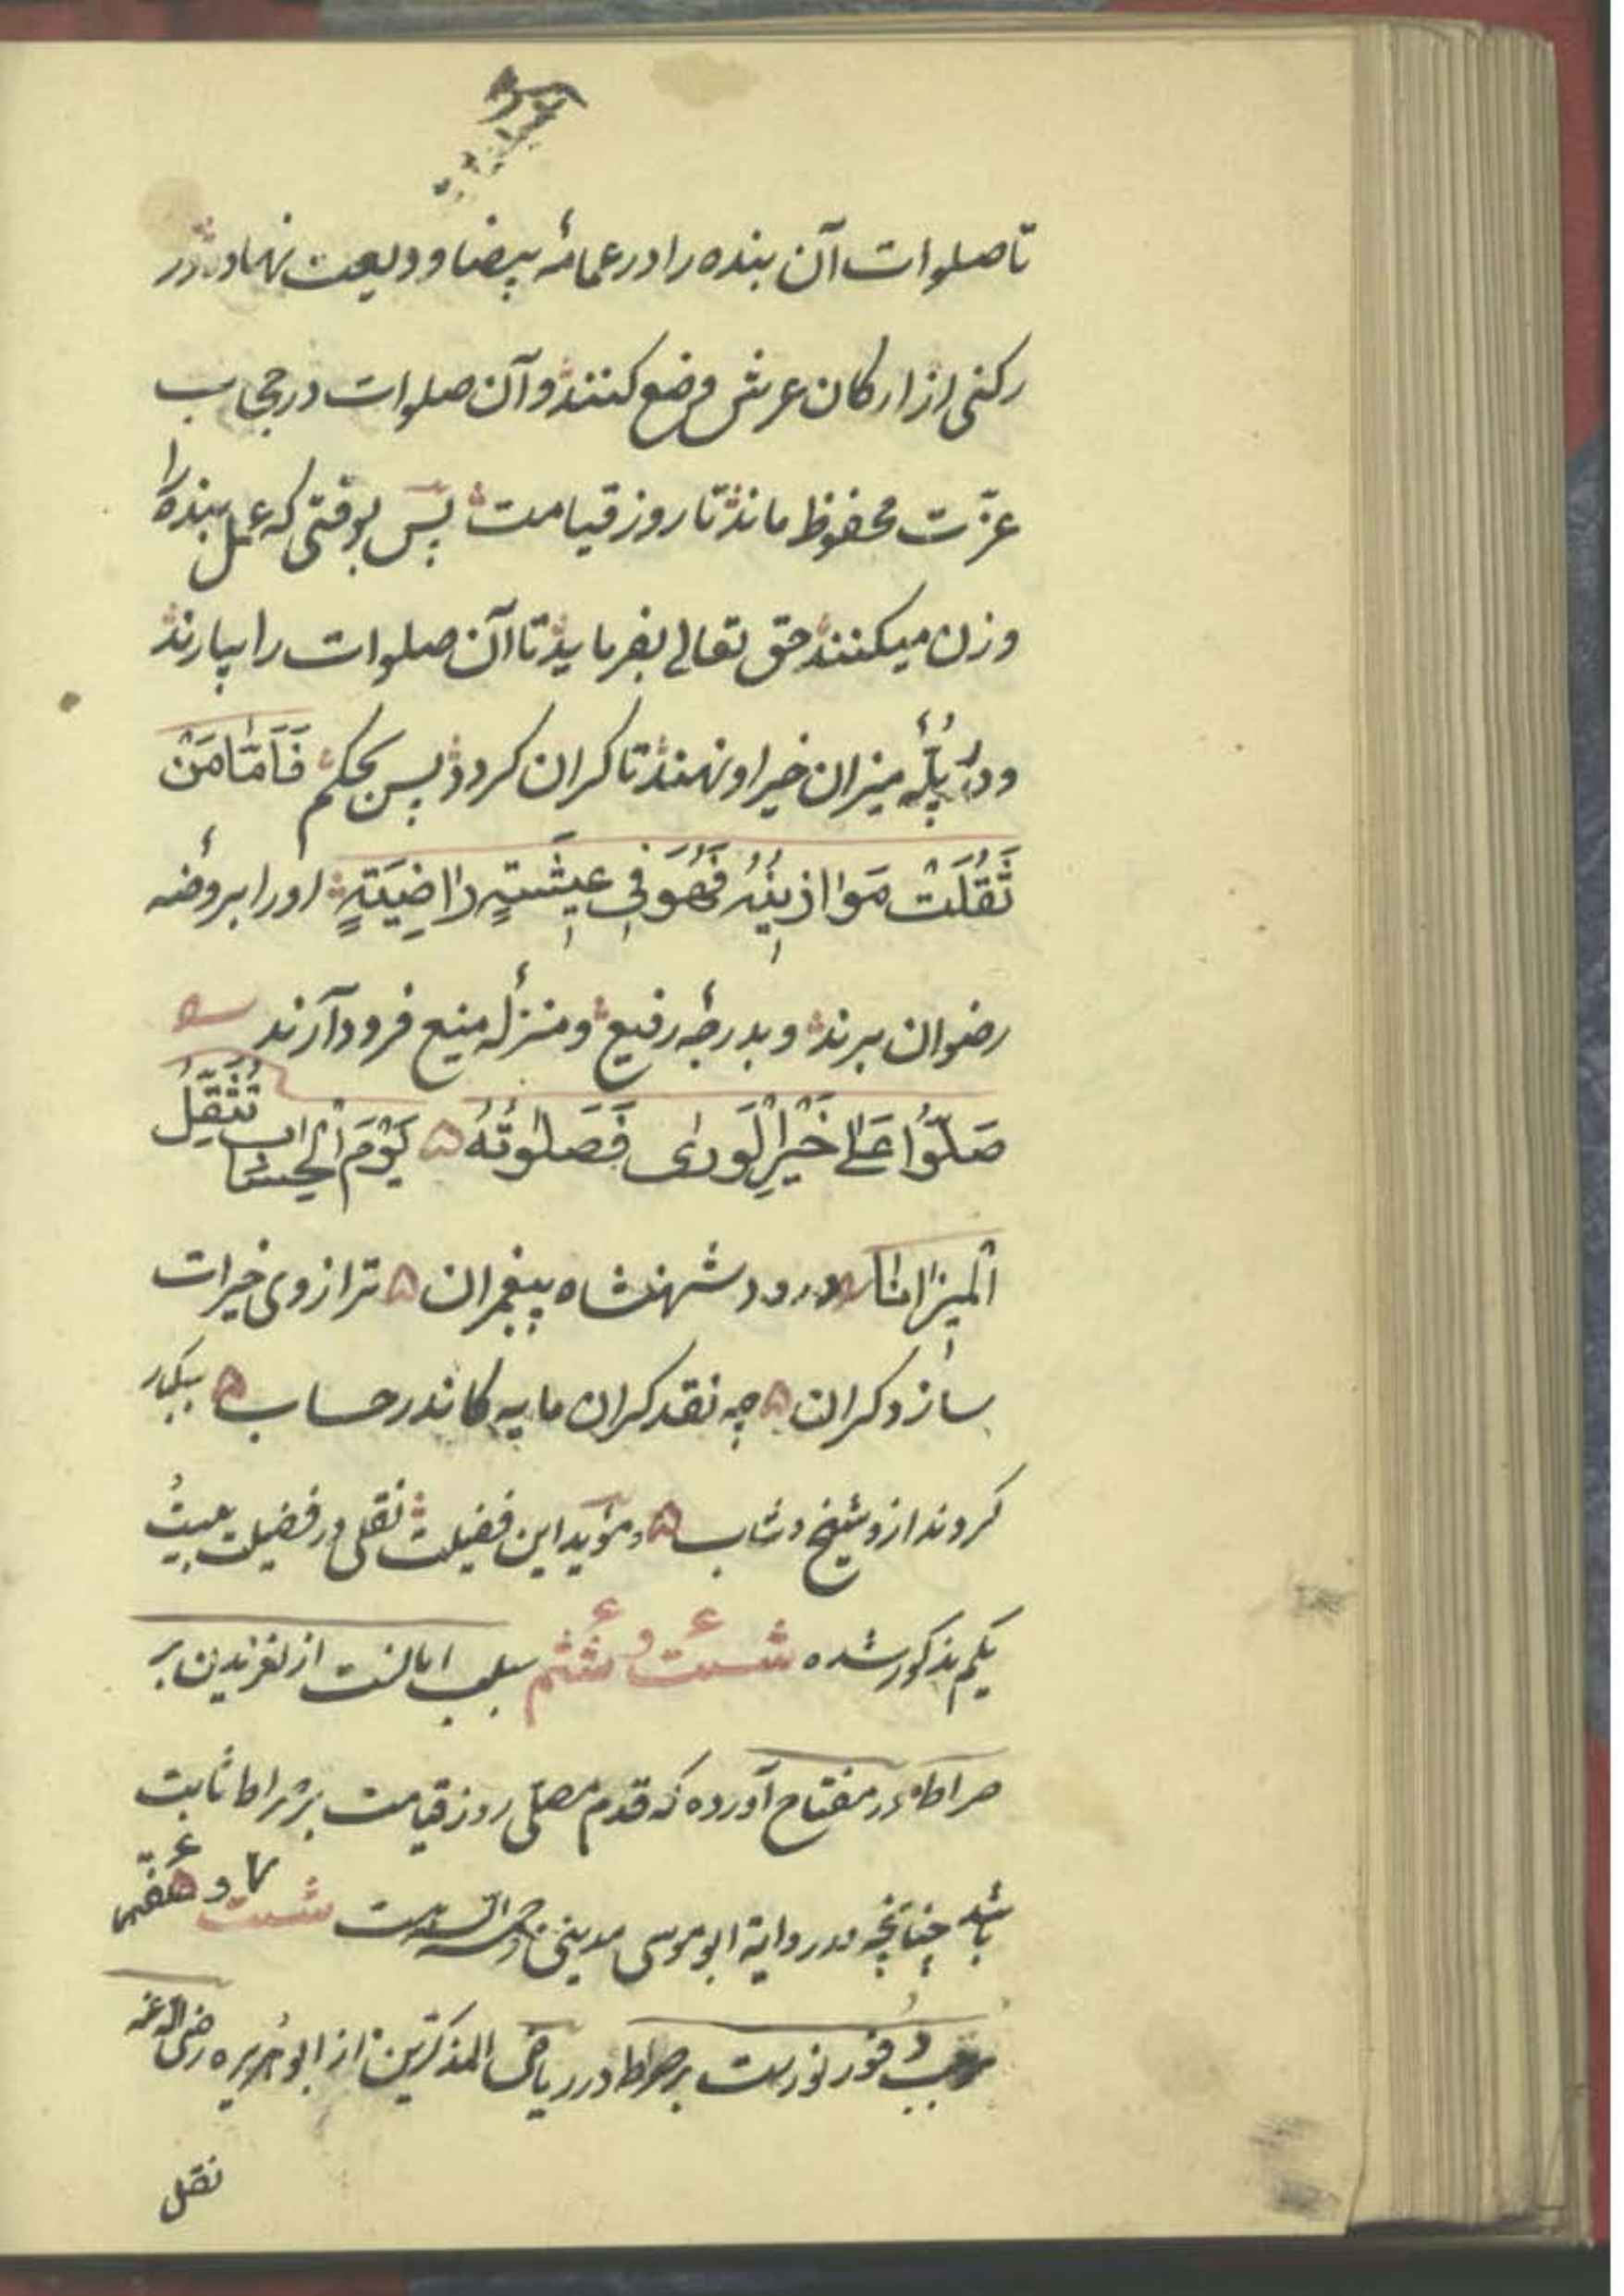 تا صلوات آن بنده را در عمامهٔ بیضا ودیعت نهاده در
رکنی از ارکان عرش وضع کنند و آن صلوات در حجاب
عزّت محفوظ ماند تا روز قیامت پس بوقتی که عمل بنده را
وزن میکنند حق تعالی بفرماید تا آن صلوات را بیارند
و در پُلّهٔ میزان خیر او نهند تا کران کردد پس بحکم فَاَمَّا مَنْ
ثَقُلَتْ مَوَازِینُهُ فَهُوَ فِی عِیشَتٍهٍ رَاضِیَتهٍ او را بروضهٔ
رضوان برند و بدرجهٔ رفیع و منزلهٔ منیع فرود آرند
صَلُّوا عَلٰی خَیْرِ الْوَرٰی فَصَلٰوتُهُ ۵ یَوْمَ الْحِسَابِ تُثَقِّلُ
اَلْمِیزَانَا درود شهنشاه پیغمبران ۵ ترازوی خیرات
سازد کران ۵ چه نقد کران مایه کاندر حساب ۵ بیکبار
کروند ازو شیخ و شاب ۵ و مؤید این فضیلت نقلی در فضیلت بیستُ
یکم مذکور شده شست و ششم سبب ایمانست از لغزیدن بر
صراط در مفتاح آورده که قدم مصلّی روز قیامت بر صراط ثابت
باشد چنانچه در روایة ابو موسی مدینی رحمه الله است شست و هفتم ۷
موجب وفور نورست بر صراط در ریاض المذکرین از ابو هُریره رضی الله عنه
نقل